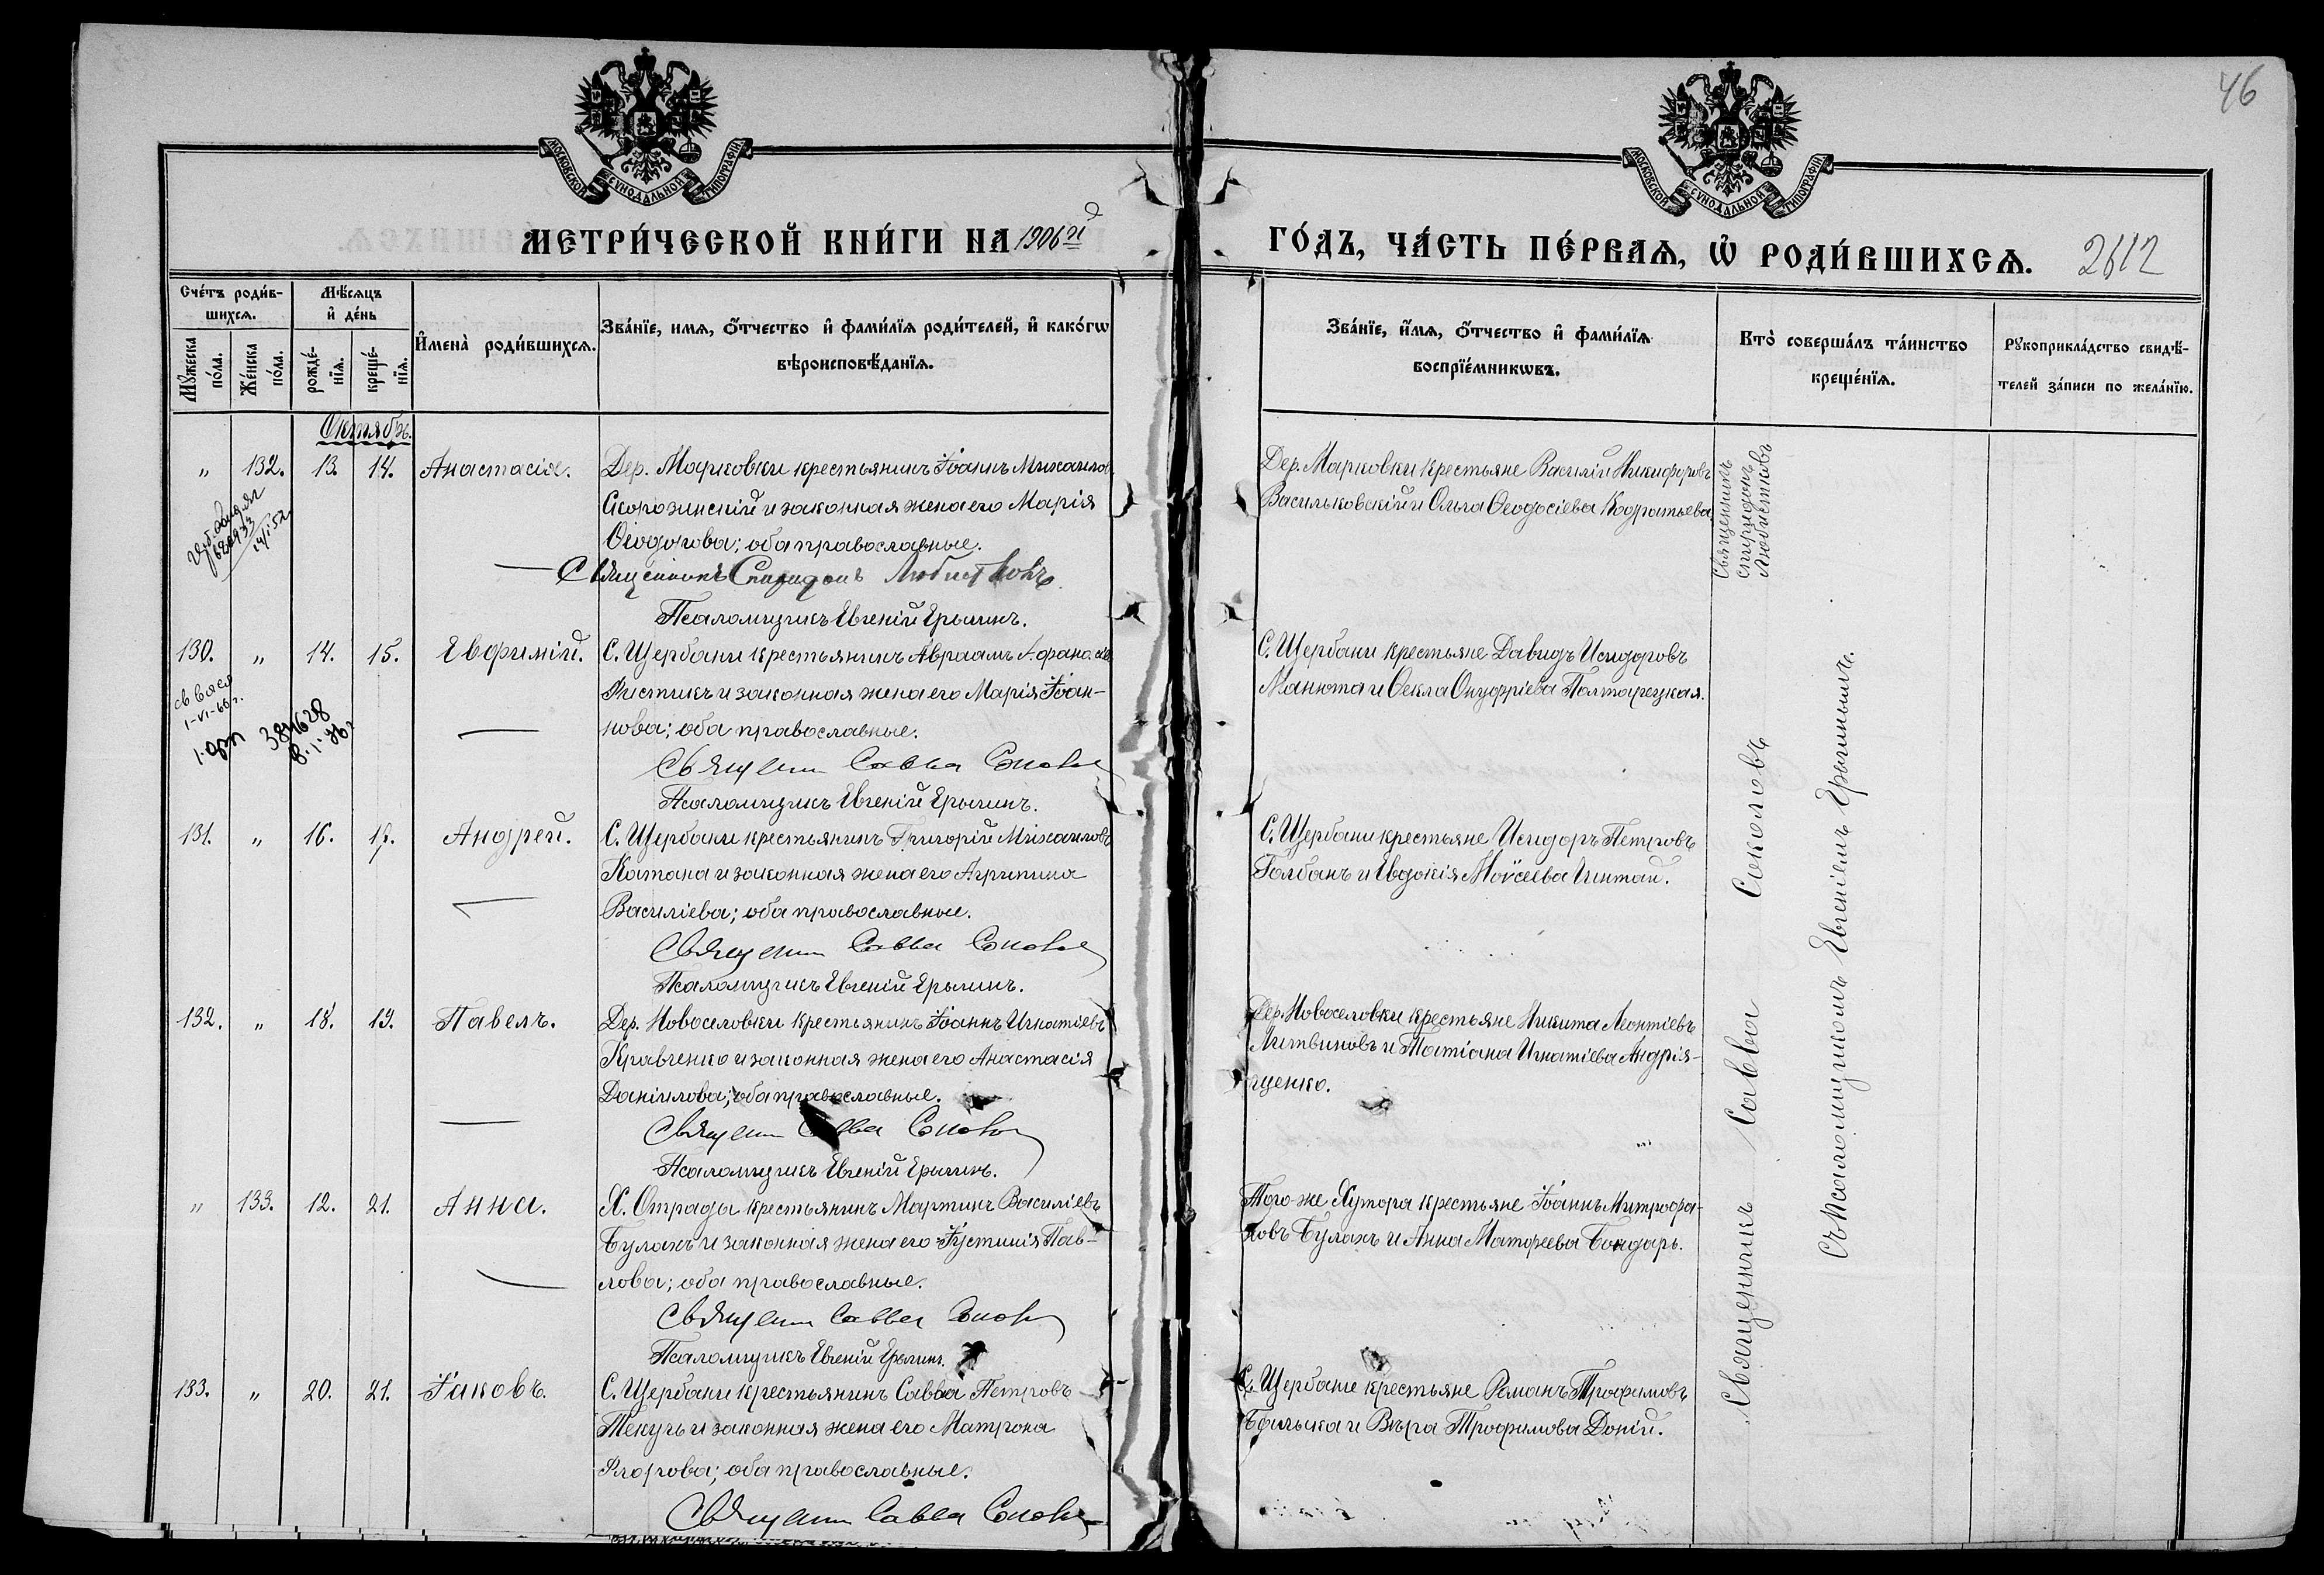 46
МОСКОВСКОЙ СУНОДАЛЬНОЙ ТИПОГРАФІИ
МОСКОВСКОЙ СУНОДАЛЬНОЙ ТИПОГРАФІИ
МЕТРИ́ЧЕСКОЙ КНИ́ГИ НА 1906й
ГО́ДЪ, ЧА́СТЬ ПЕ́РВАѦ, Ѡ҆ РОДИ́ВШИХСѦ. 2612
Сче́тъ роди́в-
шихсѧ.
Мꙋ́жеска по́ла.
Же́нска по́ла.
Мѣ́сѧцъ
и҆ де́нь
рожде́-
нїѧ.
креще́-
нїѧ.
И҆мена̀ роди́вшихсѧ.
Зва́нїе, имѧ, ѻ҆́тчество и҆ фами́лїѧ роди́телей, и҆ како́гѡ
вѣроисповѣ́данїѧ.
Зва́нїе, и҆́мѧ, ѻ҆́тчество и҆ фами́лїѧ
воспрїе́мникѡвъ.
Кто̀ соверша́лъ та́инство
креще́нїѧ.
Рꙋкоприкла́дство свидѣ́-
телей за́писи по жела́нїю.
Октябрь.
" 132. 13. 14. Анастасія.
Дер. Марковки крестьянинъ Іоаннъ Михаилов
и законная жена его Марія
Ѳеодорова; оба православные.
Священникъ Спиридонъ Любистковъ
Псаломщикъ Евгеній Ерыгинъ.
Дер. Марковки крестьяне Василій Никифоровъ
Васильковскій и Ольга Ѳеодосіева Кодратьева
Священникъ
Спиридонъ
Любистковъ
14/I 52
130. " 14. 15. Евфимій.
С. Щербани крестьянинъ Авраамъ
и законная жена его Марія Іоан-
нова; оба православные.
Священ Савва Соколов
Псаломщикъ Евгеній Ерыгинъ.
С. Щербани крестьяне Давидъ Исидоровъ
Манюта и Ѳекла Онуфріева Полторецкая.
1-VI-66 г.
384628
131. " 16. 17. Андрей.
С. Щербани крестьянинъ Григорій Михаиловъ
Катана и законная жена его Агрипина
Василіева; оба православные.
Священ Савва Соколов
Псаломщикъ Евгеній Ерыгинъ.
С. Щербани крестьяне Исидоръ Петровъ
Голбанъ и Евдокія Моѵсеева
132. " 18. 19. Павелъ.
Дер. Новоселовки крестьянинъ Іоаннъ Игнатіевъ
Кравченко и законная жена его Анастасія
Даніилова; оба православные.
Священ Савва Соколов
Псаломщикъ Евгеній Ерыгинъ.
Дер. Новоселовки крестьяне Никита Леонтіевъ
Литвиновъ и Татіана Игнатіева Андрія-
щенко.
" 133. 12. 21. Анна.
Х. Отрады крестьянинъ Мартинъ Василіевъ
Буланъ и законная жена его Іустинія Пав-
лова; оба православные.
Священ Савва Соколов
Псаломщикъ Евгеній Ерыгинъ.
Того же Хутора крестьяне Іоаннъ Митрофа-
новъ Буланъ и Анна Матфеева Бондарь.
133. " 20. 21. Іаковъ.
С. Щербани крестьянинъ Савва Петровъ
Текучъ и законная жена его Матрона
Флорова; оба православные.
Священ Савва Соколов
С. Щербани крестьяне Романъ Трофимовъ
и Вѣра Трофимова Доній.
Священникъ Савва Соколовъ
Съ Псаломщикомъ Евгеніемъ Ерыгинымъ.